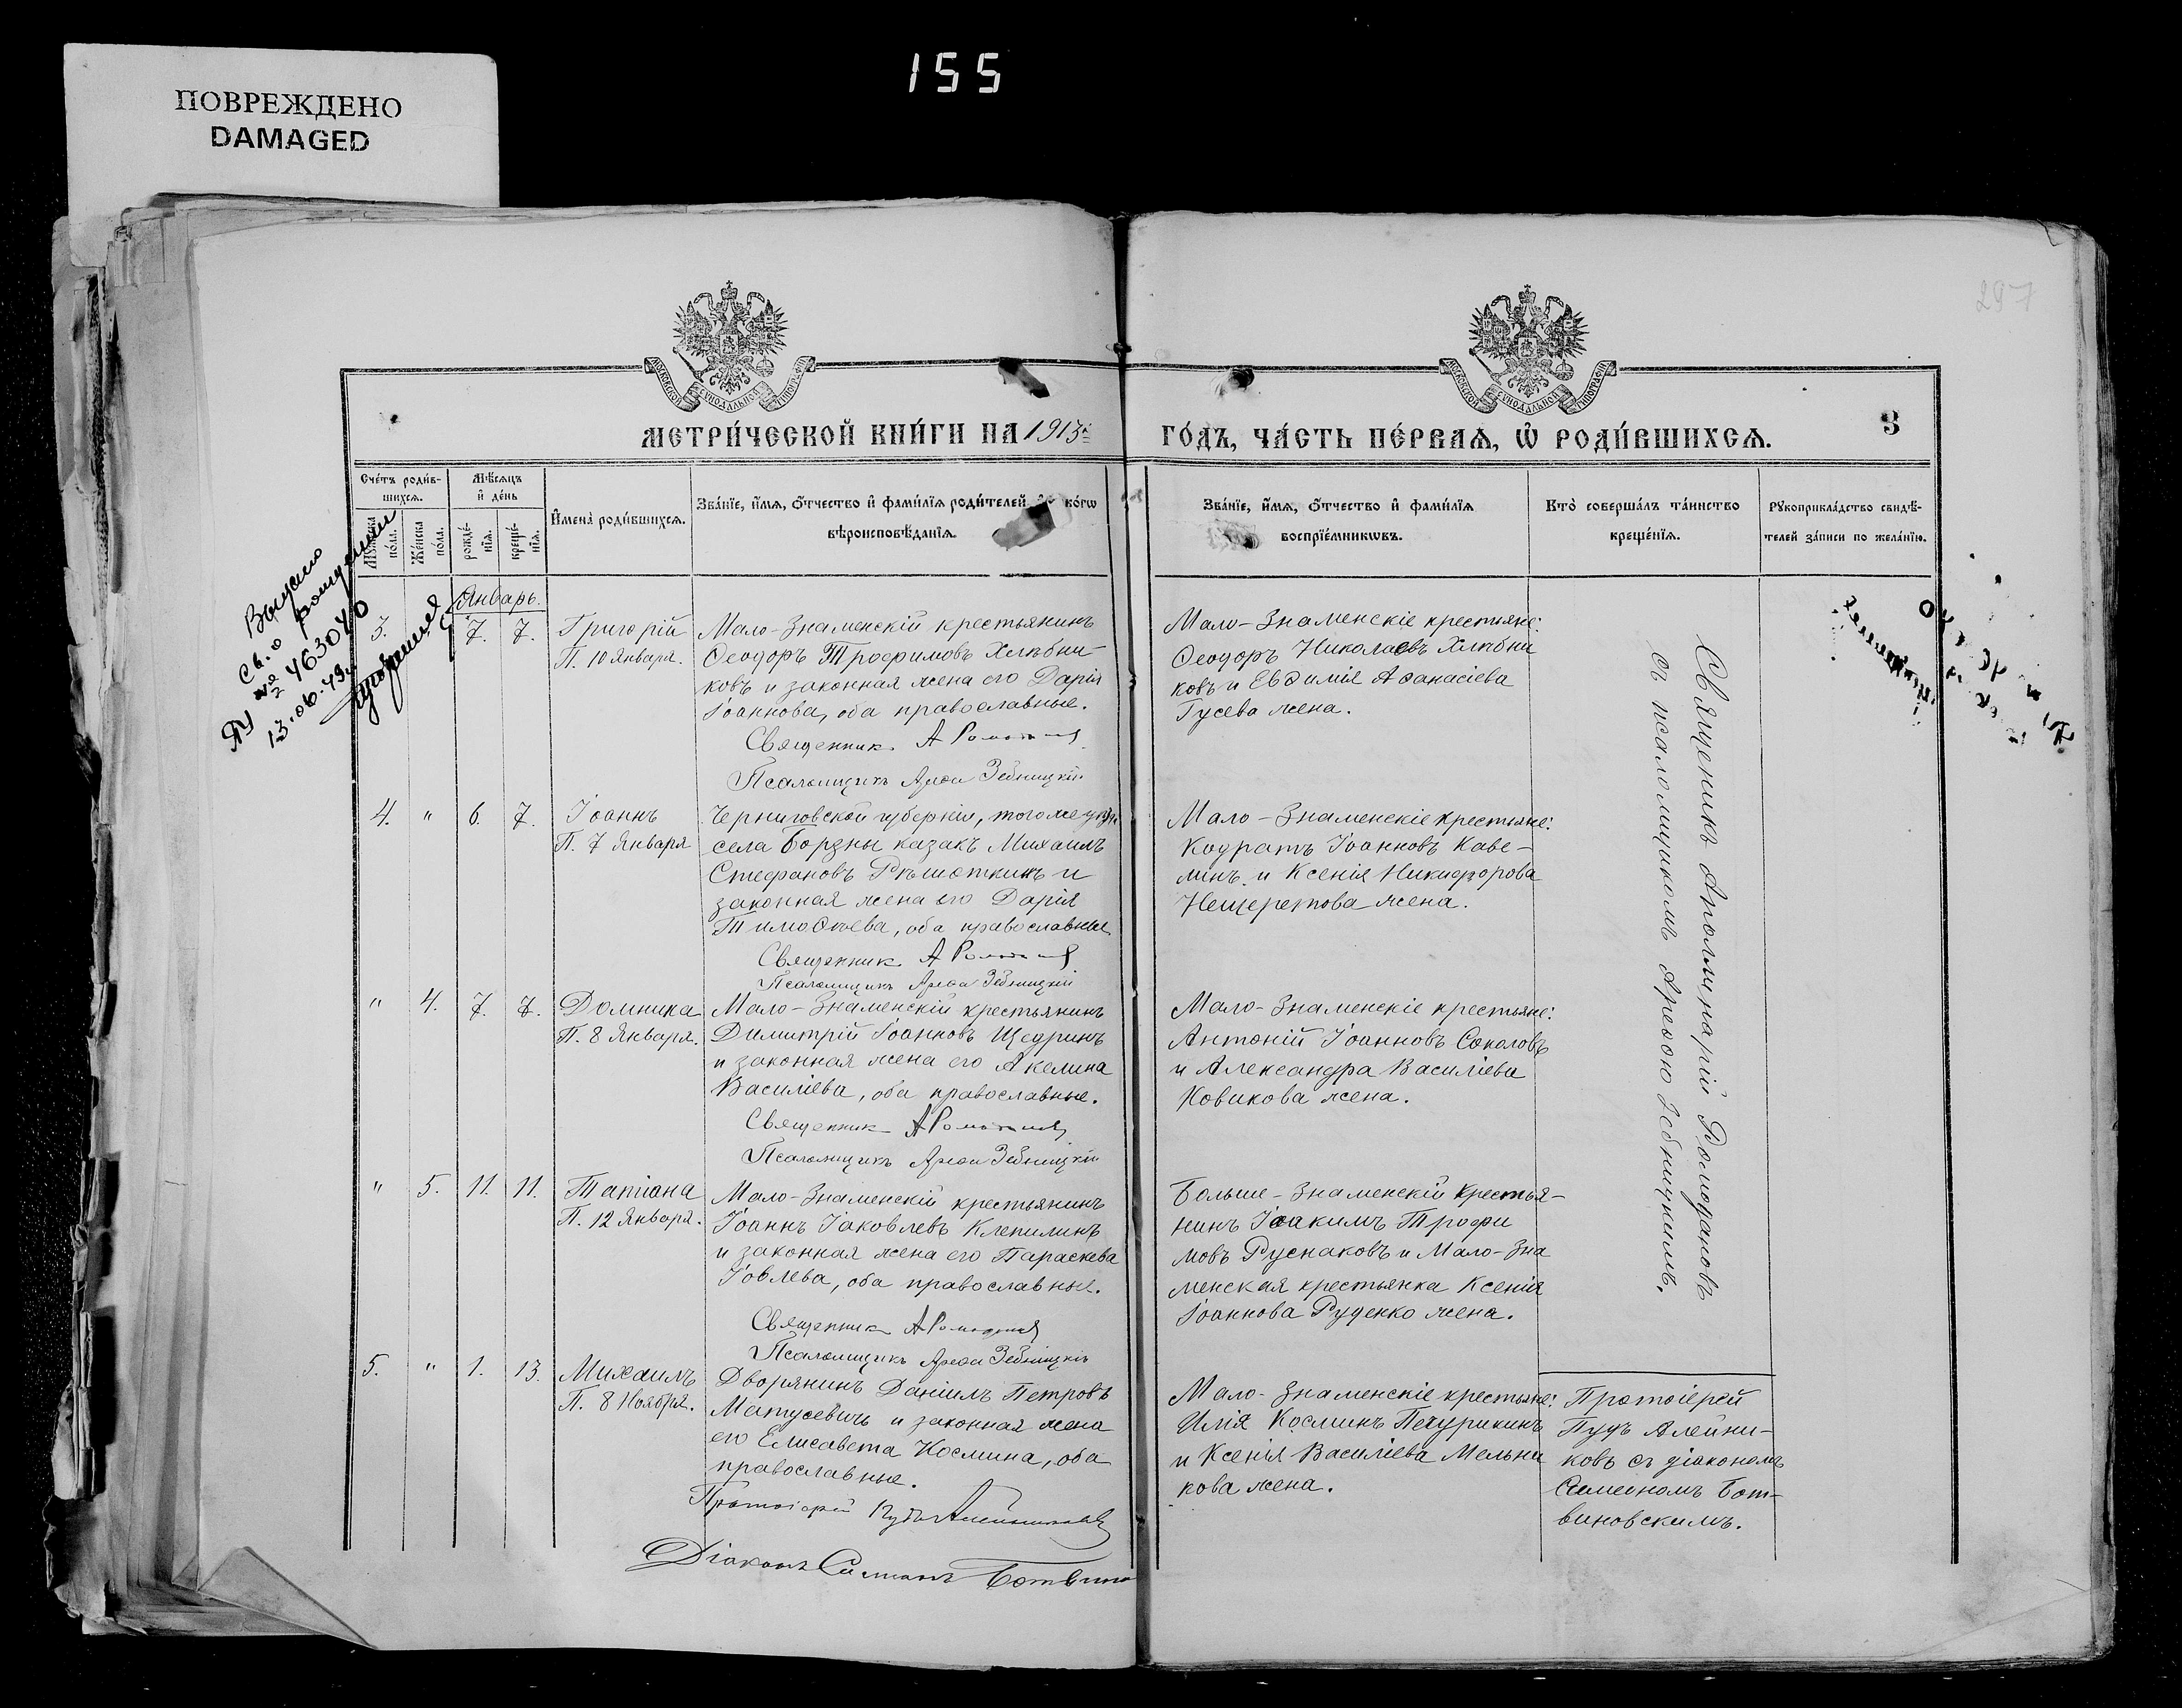 155
ПОВРЕЖДЕНО
DAMAGED
297
МЕТРИ́ЧЕСКОЙ КНИ́ГИ НА 1913й
ГО́ДЪ, ЧА́СТЬ ПЕ́РВАѦ, Ѽ РОДИ́ВШИХСѦ.
3
Сче́тъ роди́в-
шихсѧ.
Мꙋ́жеска
по́ла.
Же́нска
по́ла.
Мѣ́сѧцъ
и҆ де́нь
рожде́-
нїѧ.
креще́-
нїѧ.
И҆мена̀ роди́вшихсѧ.
Зва́нїе, и҆́мѧ, ѻ҆́тчество и҆ фами́лїѧ роди́телей ко́гѡ
вѣроисповѣ́данїѧ.
Зва́нїе, и҆́мѧ, ѻ҆́тчество и҆ фами́лїѧ
воспрїе́мникѡвъ.
Кто̀ соверша́лъ та́инство
креще́нїѧ.
Рꙋкоприкла́дство свидѣ́-
телей за́писи по жела́нїю.
Выдано
св. о рождении
ЯУ № 463040
13.06.73г.
Январь.
3.
7. 7.
Григорій
П. 10 Января.
Мало-Знаменскій крестьянинъ
Ѳеодоръ Трофимовъ Хлѣбни-
ковъ и законная жена его Дарія
Іоаннова, оба православные.
Священник А Ромоданов
Псаломщикъ Арефа Зебницкій
Мало-Знаменскіе крестьяне:
Ѳеодоръ Николаевъ Хлѣбни
ковъ и Евдимія Аѳанасіева
Гусева жена.
4. " 6. 7.
Іоаннъ
П. 7 Января
Черниговской губерніи, того же уѣзда
села Борзны казакъ Михаилъ
Стефановъ Рѣшоткинъ и
законная жена его Дарія
Тимоѳеева, оба православные
Священник А Ромоданов
Псаломщикъ Арефа Зебницкій
Мало-Знаменскіе крестьяне:
Кодратъ Іоанновъ Каве-
линъ и Ксенія Никифорова
Нещеретова жена.
" 4. 7. 7.
Домника
П. 8 Января.
Мало-Знаменскій крестьянинъ
Димитрій Іоанновъ Щедринъ
и законная жена его Акелина
Василіева, оба православные.
Священник А Ромоданов
Псаломщикъ Арефа Зебницкій
Мало-Знаменскіе крестьяне:
Антоній Іоанновъ Соколовъ
и Александра Василіева
Новикова жена.
" 5. 11. 11.
Татіана
П. 12 Января.
Мало-Знаменскій крестьянинъ
Іоаннъ Іаковлевъ Клепилинъ
и законная жена его Параскева
Іовлева, оба православные.
Священник А Ромоданов
Псаломщикъ Арефа Зебницкій
Больше-Знаменскій крестья-
нинъ Іоакимъ Трофи
мовъ Руснаковъ и Мало-Зна
менская крестьянка Ксенія
Іоаннова Руденко жена.
Священникъ Аполлинарій Ромодановъ
съ псаломщикомъ Арефою Зебницкимъ.
5. " 1. 13.
Михаилъ
П. 8 Ноября.
Дворянинъ Даніилъ Петровъ
Матусевичъ и законная жена
его Елисавета Космина, оба
православные.
Протоіерей Пудъ Алейниковъ
Діаконъ Симеонъ Ботвино
Мало-Знаменскіе крестьяне:
Илія Косминъ Печурикинъ
и Ксенія Василіева Мельни
кова жена.
Протоіерей
Пудъ Алейни-
ковъ съ діакономъ
Симеономъ Бот-
виновскимъ.